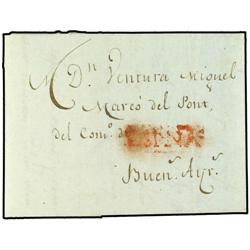 Dn. Ventura Miguel
Marcó del Pont,
del Como. de
Buens. Ayrs.